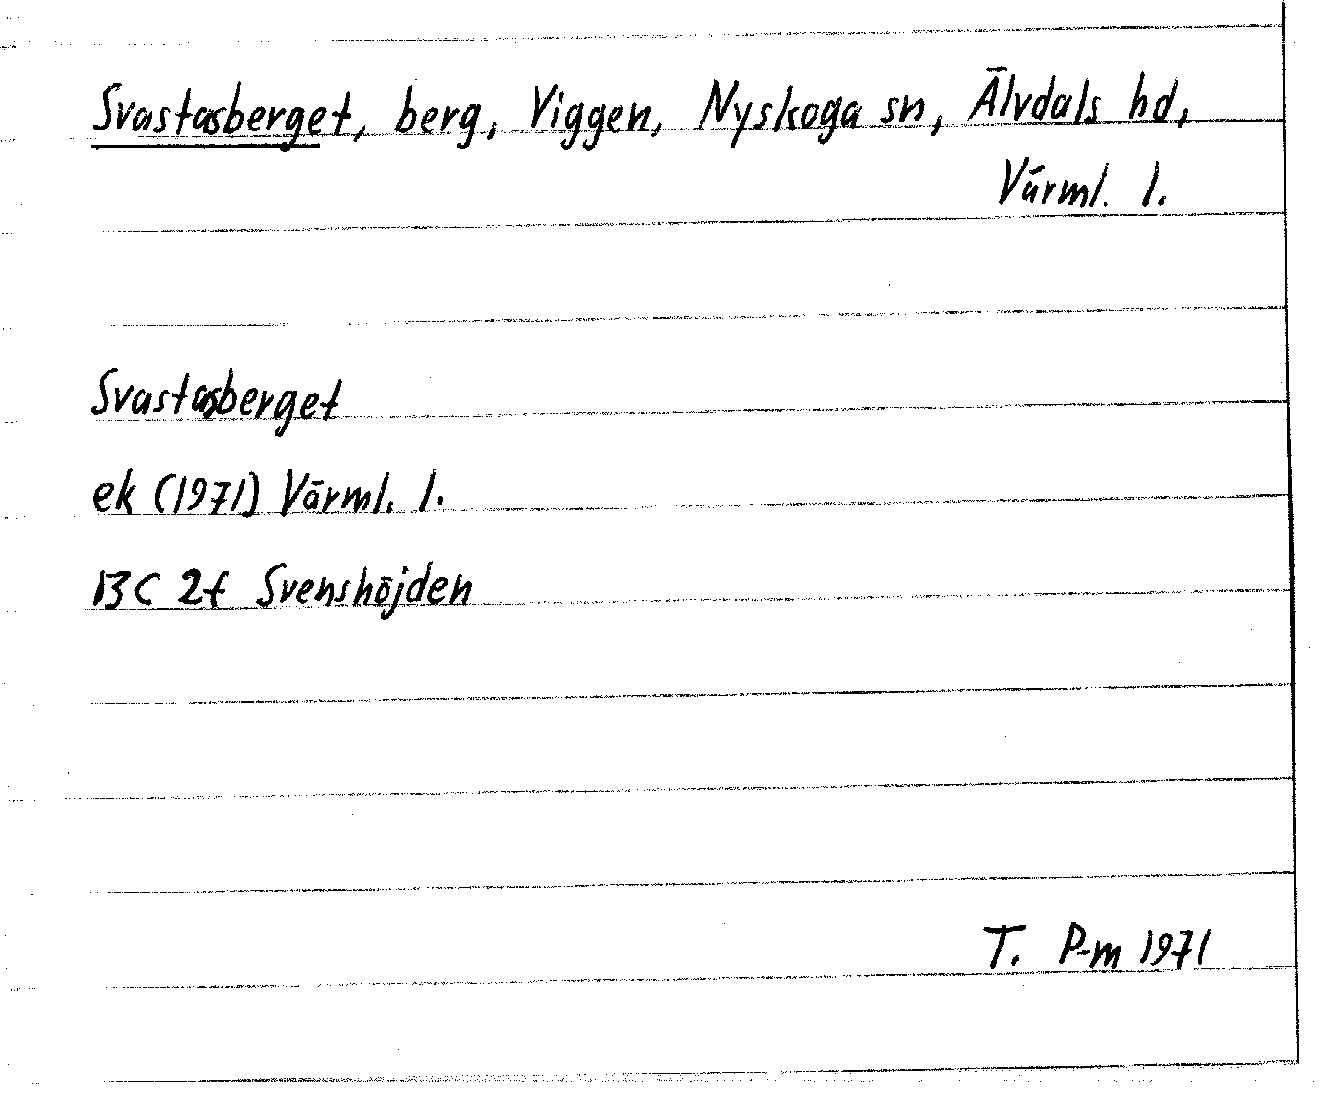 Svastasberget, berg, Viggen, Nyskoga sn, Älvdals hd,
Värml. l.
Svastasberget
ek (1971) Värml. l.
13C 2f Svenshöjden
T. P-m 1971